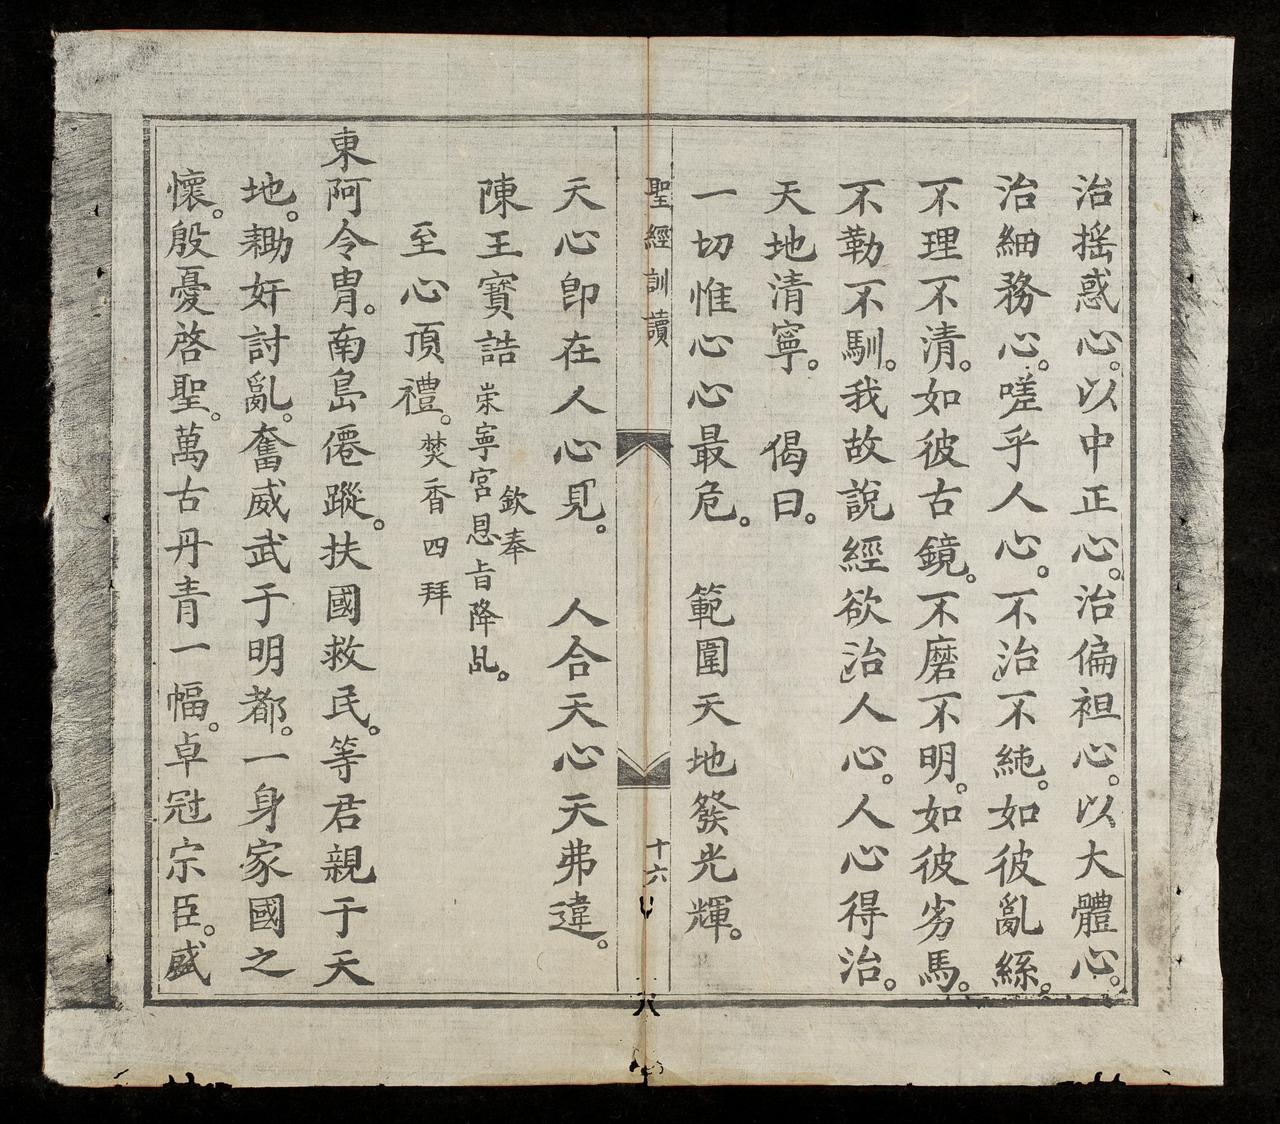 治搖惑心。以中正心。治偏袒心。以大體心。
治細務心。嗟乎人心。不治不純。如彼亂絲。
不理不清。如彼古鏡。不磨不明。如彼劣馬。
不勒不馴。我故説經欲治人心。人心得治。
天地清寧。 偈曰。
一切惟心心最危。 範圍天地發光輝。
聖經訓讀 十六
天心即在人心見。 人合天心天弗違。
陳王寶誥 欽奉
崇寧宮恩旨降乩。
至心頂禮。焚香四拜
東阿令胄。南島僊蹤。扶國救民。等君親于天
地。耡奸討亂。奮威武于明都。一身家國之
懷。殷憂啓聖。萬古丹青一幅。卓冠宗臣。盛